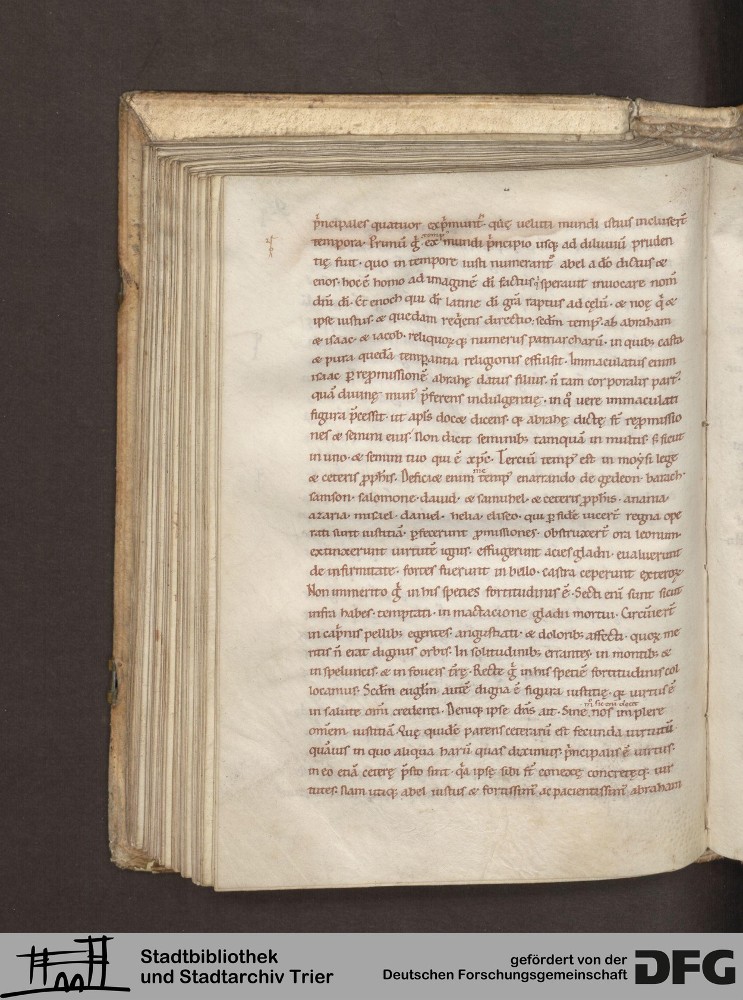 p̄ncipales quatuor exp̄munt᷒· quę veluti mundi istius incluser̄t
tempora· Primū g̊· ex mundi p̄ncipio usq; ad diluuiū pruden
tię fuit· quo in tempore iusti numerant᷒ abel a dō dictus &
enos· hoc ē homo ad imaginē dī factus· sperauit inuocare nom̄
dn̄i dī· Et enoch qui dr̄ latine dī grā raptus ad cęlū· & noę q̄ &
ipse iustus· & quedam req̄etis directio· scdm̄ temp᷒ ab abraham
& isaac· & iacob· reliquoꝝ q; numerus patriarcharū· in quib; casta
& pura quedā temp̱antia religionis effulsit· Immaculatus enim
isaac p̱ rep̱missionē abrahę datus filius· n̄ tam corporalis part᷒·
quā diuinę mun᷒ p̄ferens indulgentię· in q̊ vere immaculati
figura p̄cessit· ut apl̄s doc& dicens· q; abrahę dictę st̄ rep̱missio
nes & semini eius· Non dicit seminib; tamquā in multis· s; sicut
in uno· & semini tuo qui ē xp̄c· Terciū temp᷒ est in moysi lege
& ceteris p̱phis· Defici& enim me temp᷒ enarrando de gedeon· barach·
samson· salomone· dauid· & samuhel· & ceteris p̱phis· anania·
azaria· misael· daniel· helia· eliseo· qui p̱ fidē vicer̄t regna ope
rati sunt iustitiā· p̱fecerunt p̱missiones· obstruxer̄t ora leonum·
extinxerunt virtutē ignis· effugerunt acies gladii· eualuerunt
de infirmitate· fortes fuerunt in bello· castra ceperunt exteroꝝ·
Non inmerito g̊ in his species fortitudinis ē· Secti enī sunt sicut
infra habes· temptati· in mactacione gladii mortui· Circūier̄t
in cap̄nis pellib; egentes· angustiati· & dolorib; affecti· quoꝝ me
ritis n̄ erat dignus orbis· In solitudinib; errantes· in montib; &
in speluncis· & in foueis tr̄ę· Recte g̊ in his speciē fortitudinis col
locamus· Scdm̄ eugl̄m autē digna ē figura iustitię· q; uirtus ē
in salutē om̄i credenti· Deniq; ipse dn̄s ait· Sine nos implere
omēm iustitiā· Quę quidē parens ceterarū est fecunda uirtutū
quāuis in quo aliqua harū quas diximus· p̄ncipalis ē virtus·
in eo etiā ceterę p̄sto sunt· q̄a ipsę sibi st̄ conexę concretęq; uir
tutes· Nam utiq; abel iustus & fortissim᷒ ac pacientissim᷒ abraham
Stadtbibliothek
und Stadtarchiv Trier
gefördert von der
Deutschen Forschungsgemeinschaft
DFG